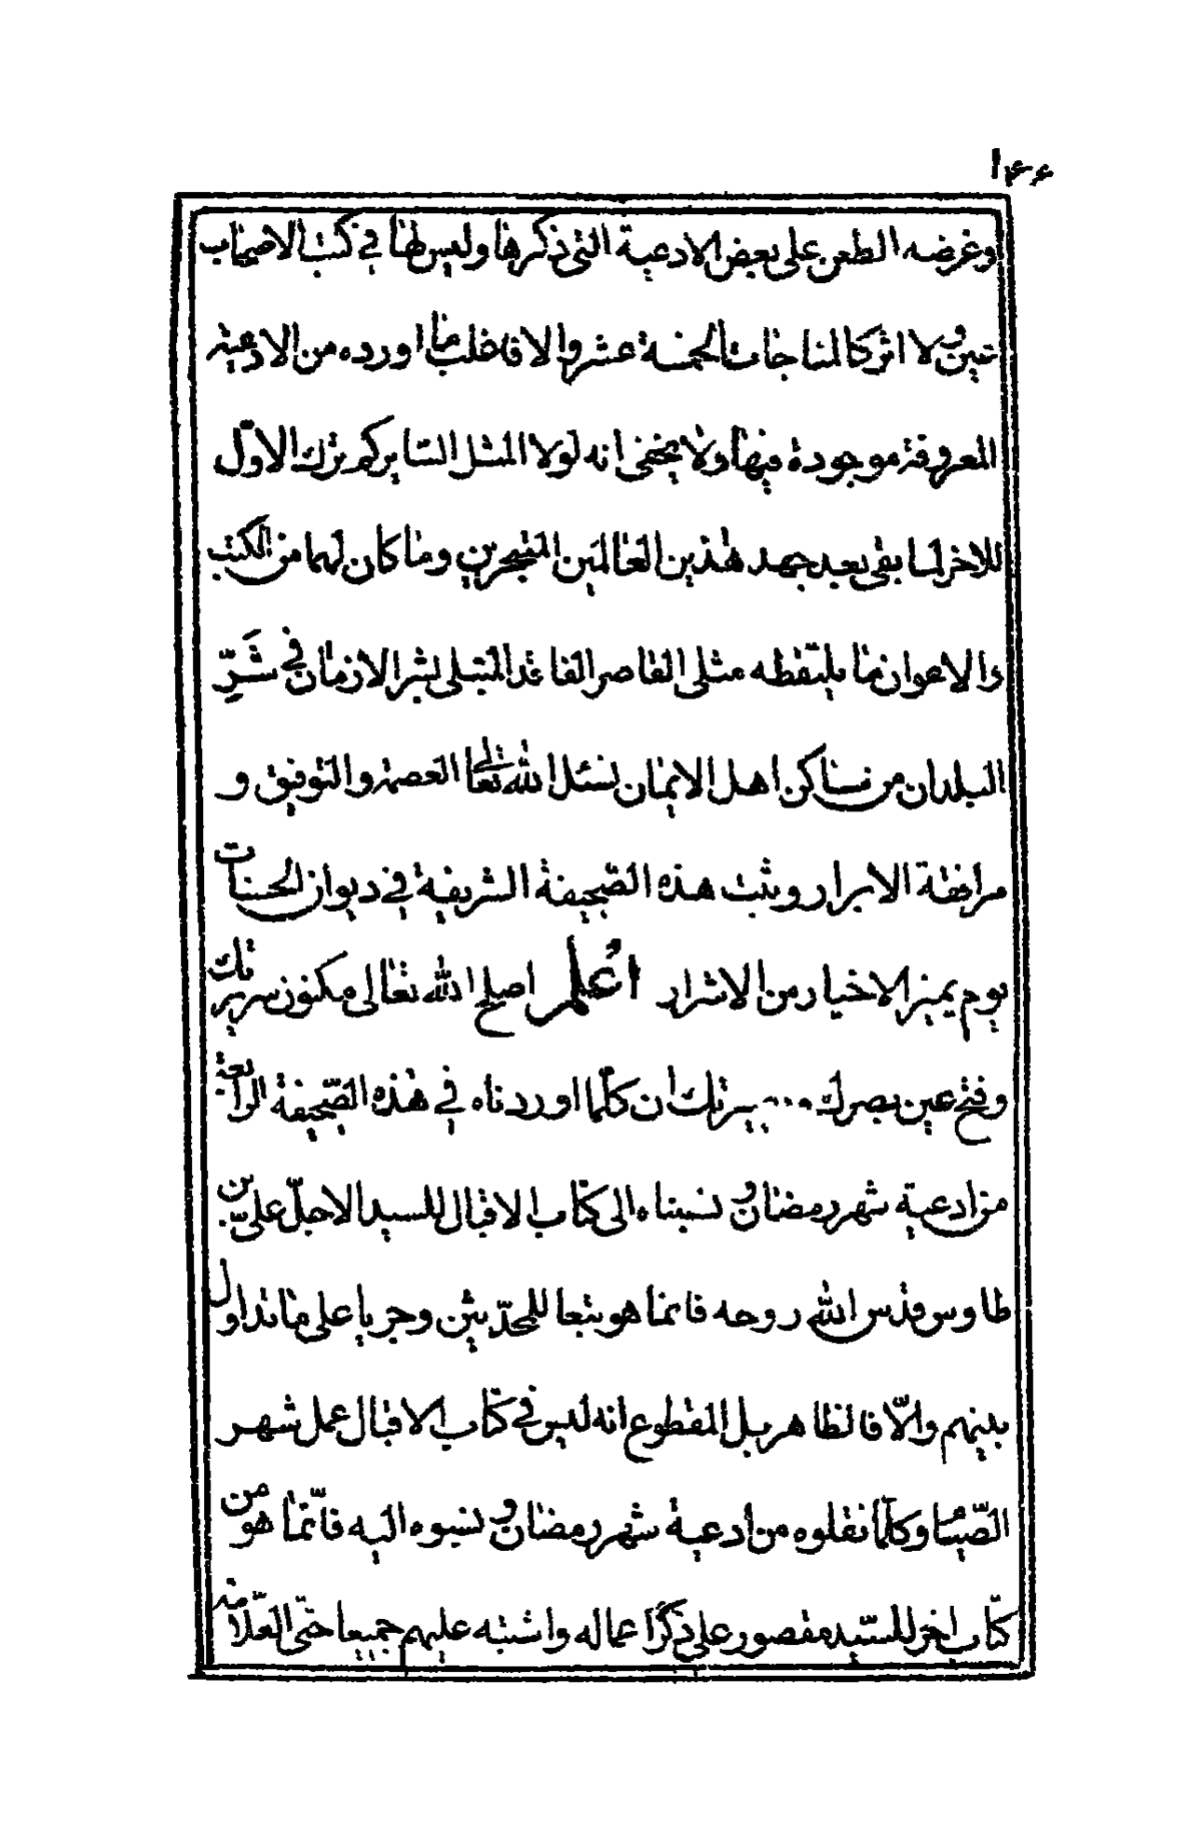 ۱۴۶
وغرضه الطعن على بعض الادعية التى ذكرها وليس لها في كتب الاصحاب
عين ولا اثر كالمناجات الخمسة عشر والا فاغلب ما اورده من الادعية
المعروفة موجودة فيها ولا يخفى انه لولا المثل السّاير كم ترك الاوّل
للاخر لما بقى بعد جهد هذين العالمين المتبحرين وما كان لهما من الكتب
والاعوان ما يلتقطه مثلى القاصر الفاقد المبتلى بشر الازمان في شَرِّ
البلدان من مساكن اهل الايمان نسئل الله تعالى العصمة والتوفيق و
مرافقة الابرار ويثبت هذه الصّحيفة الشريفة في ديوان الحسنات
يوم يميز الاخيار من الاشرار اعلم اصلح الله تعالى مكنون سريرتك
وفتح عين بصرك ... سيرتك ان كلّما اوردناه في هذه الصّحيفة الرابعة
من ادعية شهر رمضان ونسبناه الى كتاب الاقبال للسيد الاجلّ علىّ بن
طاوس قدّس الله روحه فانما هو تبعا للمحدّثين وجريا على ما تداول
بينهم والّا فالظاهر بل المقطوع انه ليس في كتاب الاقبال عمل شهر
الصّيام وكلّما نقلوه من أدعية شهر رمضان ونسبوه اليه فانّما هو من
كتاب اخر للسّيد مقصور على ذكر اعماله واشتبه عليهم جميعا حتّى العّلامة